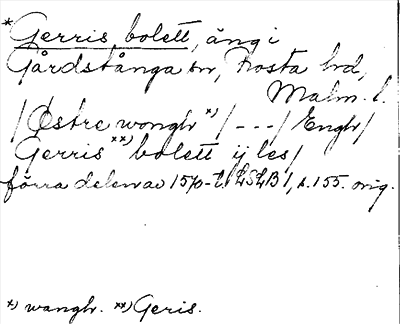 *Gerris bolett, äng i
Gårdstånga sn, Frosta hrd,
Malm. l.
/Østre wongh *)/ - - - / Engh/
Gerris **) bolett ij les/
förra delen av 1570-t. LSLB 1, s. 155. orig.
*) wangh. **) Geris.